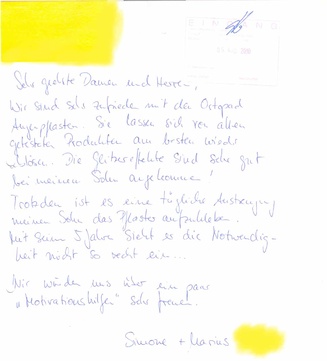 Sehr geehrte Damen und Herren,
Wir sind sehr zufrieden mit den Ortopad
Augenpflastern. Sie lassen sich von allen
getesteten Produkten am besten wieder
lösen. Die Glitzereffekte sind sehr gut
bei meinem Sohn angekommen!
Trotzdem ist es eine tägliche Anstrengung
meinem Sohn das Pflaster aufzukleben.
Mit seinen 5 Jahren sieht er die Notwendig-
keit nicht so recht ein...
Wir würden uns über ein paar
„Motivationshilfen" sehr freuen.
Simone + Marius